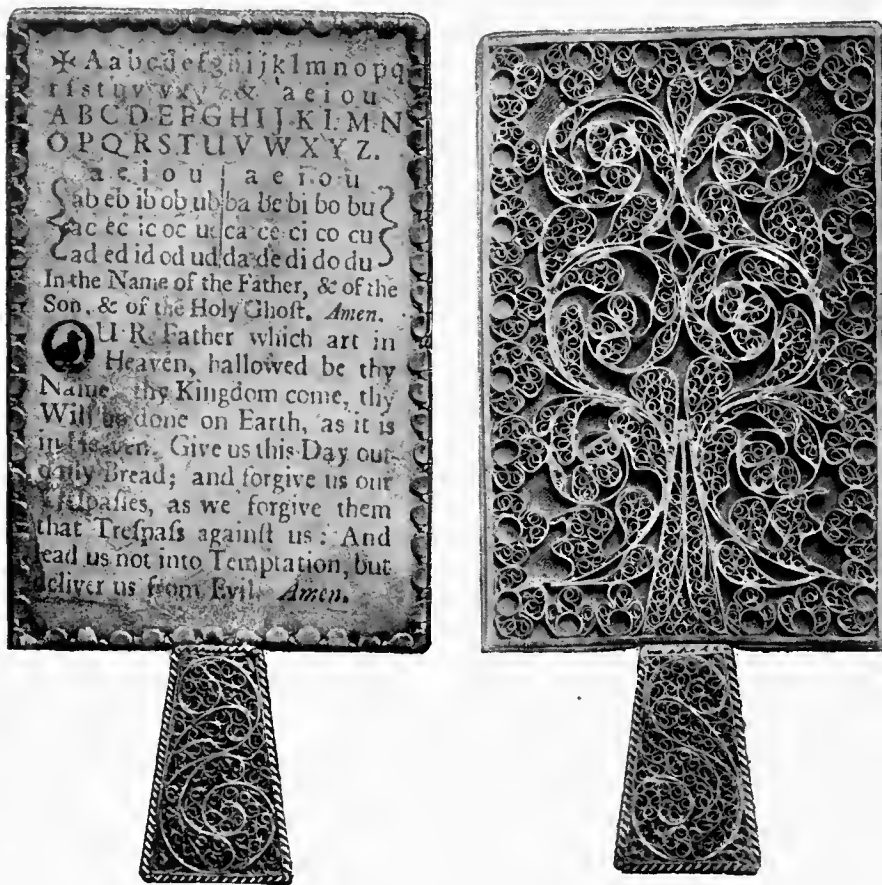 ✠ Aabcdefghijklmnopq
rſstuvvwxyz & aeiou
ABCDEFGHIJKLMN
OPQRSTUVWXYZ.
a e i o u a e i o u
ab eb ib ob ub ba be bi bo bu
ac ec ic oc uc ca ce ci co cu
ad ed id od ud da de di do du
In the Name of the Father, & of the
Son, & of the Holy Ghoſt. Amen.
OUR Father which art in
Heaven, hallowed be thy
Name, thy Kingdom come, thy
Will be done on Earth, as it is
in Heaven. Give us this Day our
daily Bread; and forgive us our
Treſpaſſes, as we forgive them
that Treſpaſs againſt us: And
lead us not into Temptation, but
deliver us from Evil. Amen.